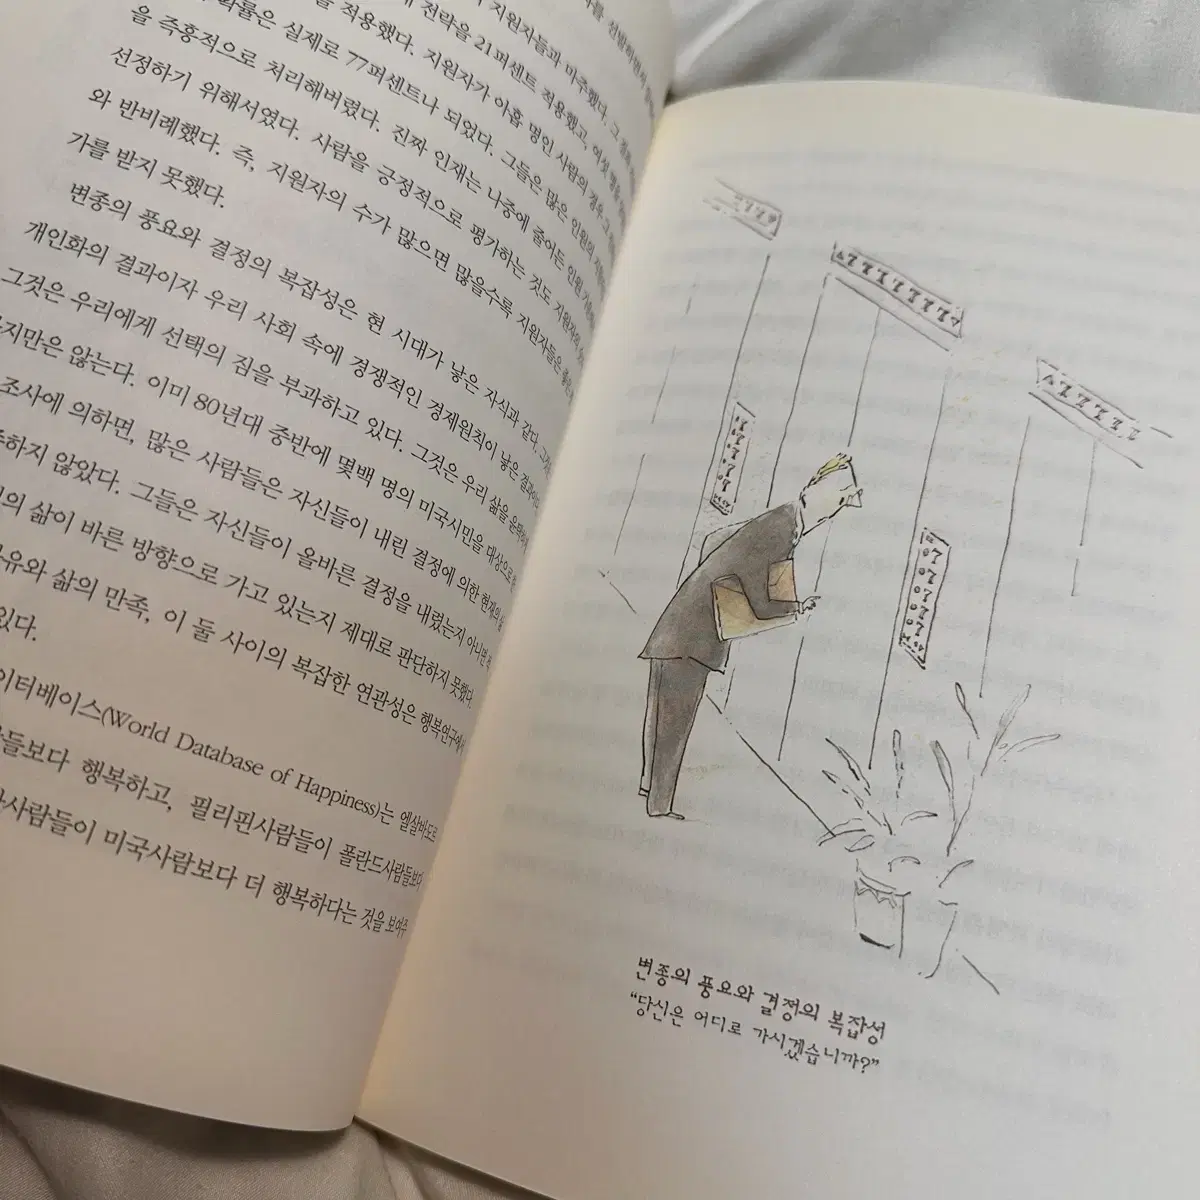 전략을 21퍼센트 적용했고, 여섯 명을
적용했다. 지원자가 아홉 명인 사람의 경우, 그
확률은 실제로 77퍼센트나 되었다. 그들은 많은 인원의
을 즉흥적으로 처리해버렸다. 진짜 인재는 나중에 줄어든 인원 가운데
선정하기 위해서였다. 사람을 긍정적으로 평가하는 것도 지원자의
와 반비례했다. 즉, 지원자의 수가 많으면 많을수록 지원자들은 좋은
가를 받지 못했다.
변종의 풍요와 결정의 복잡성은 현 시대가 낳은 자식과 같다. 그것은
개인화의 결과이자 우리 사회 속에 경쟁적인 경제원칙이 낳은 결과이다.
그것은 우리에게 선택의 짐을 부과하고 있다. 그것은 우리 삶을
지만은 않는다. 이미 80년대 중반에 몇백 명의 미국시민을 대상으로 한
조사에 의하면, 많은 사람들은 자신들이 내린 결정에 의한 현재의
하지 않았다. 그들은 자신들이 올바른 결정을 내렸는지 아니면
의 삶이 바른 방향으로 가고 있는지 제대로 판단하지 못했다.
유와 삶의 만족, 이 둘 사이의 복잡한 연관성은 행복연구에서
있다.
이터베이스(World Database of Happiness)는 엘살바도르
들보다 행복하고, 필리핀사람들이 폴란드사람들보다
사람들이 미국사람보다 더 행복하다는 것을 보여주
변종의 풍요와 결정의 복잡성
“당신은 어디로 가시겠습니까?”